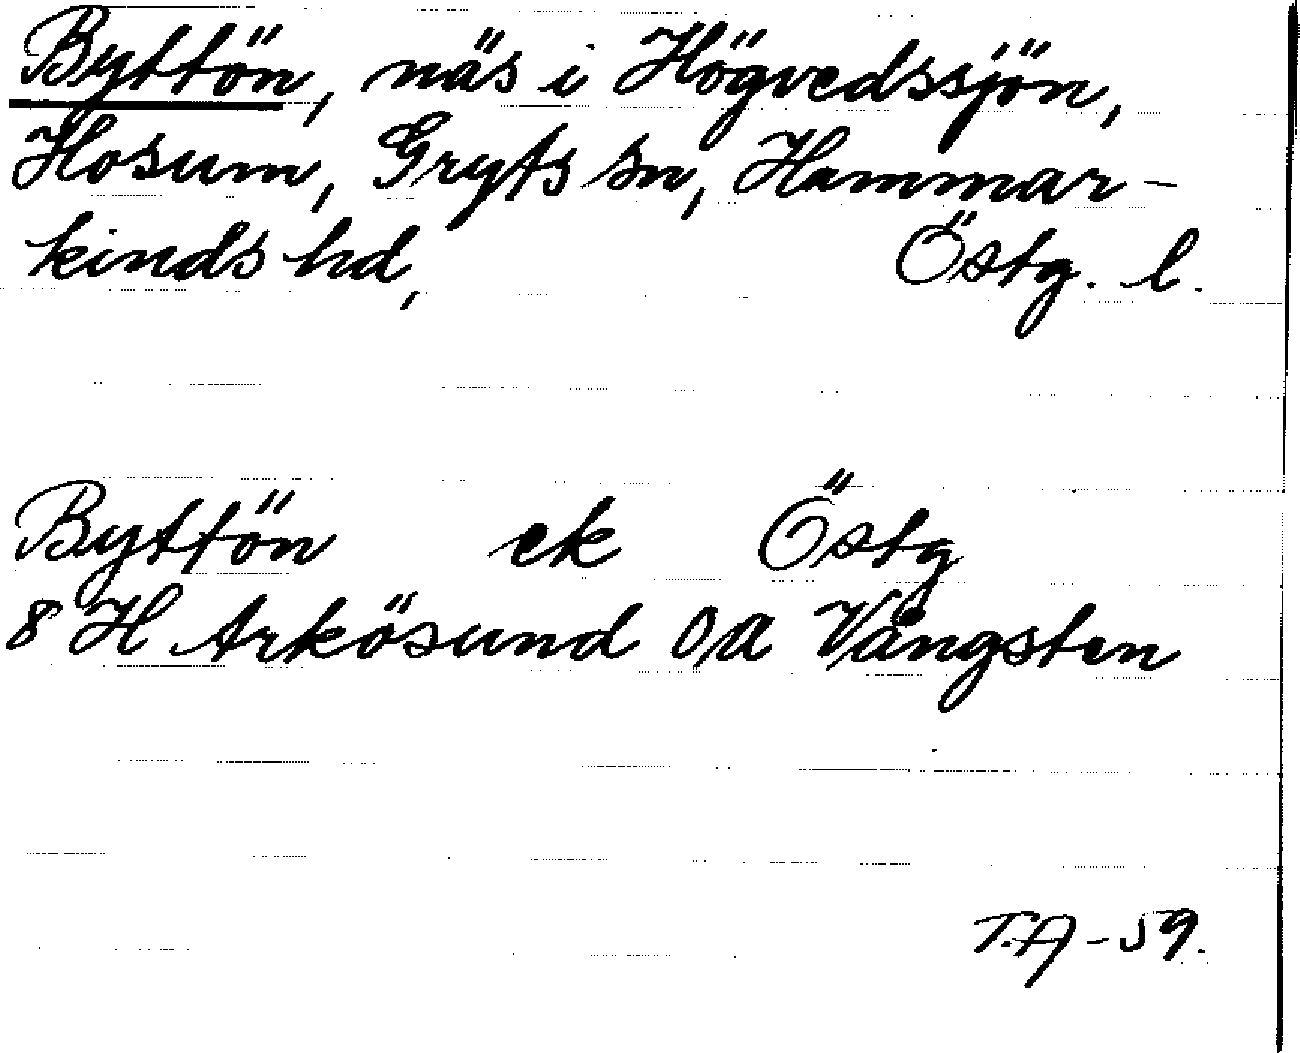 Byttön, näs i Högvedssjön,
Hosum, Gryts sn, Hammar-
kinds hd, Östg. l.
Byttön ek Östg
8 H Arkösund o/a Vångsten
T.A-59.